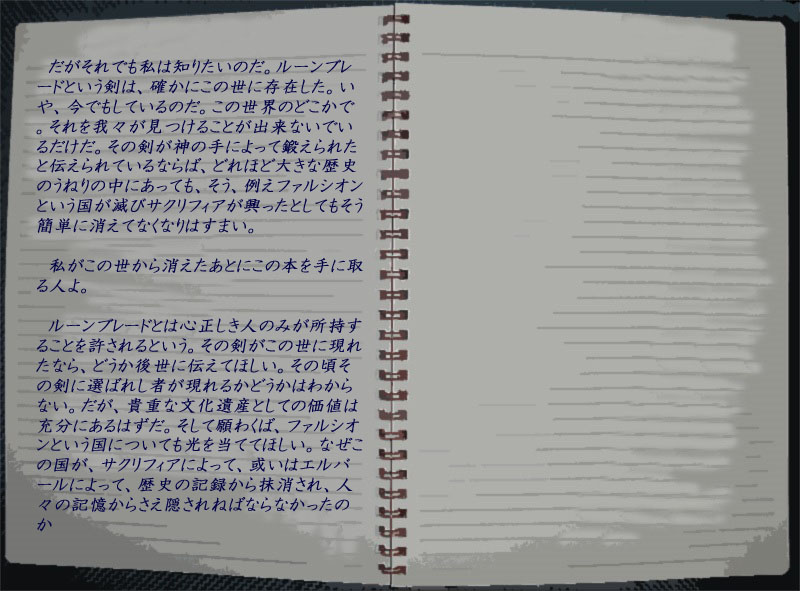 だがそれでも私は知りたいのだ。ルーンブレ
ードという剣は、確かにこの世に存在した。い
や、今でもしているのだ。この世界のどこかで
。それを我々が見つけることが出来ないでい
るだけだ。その剣が神の手によって鍛えられた
と伝えられているならば、どれほど大きな歴史
のうねりの中にあっても、そう、例えファルシオン
という国が滅びサクリフィアが興ったとしてもそう
簡単に消えてなくなりはすまい。
私がこの世から消えたあとにこの本を手に取
る人よ。
ルーンブレードとは心正しき人のみが所持す
ることを許されるという。その剣がこの世に現れ
たなら、どうか後世に伝えてほしい。その頃そ
の剣に選ばれし者が現れるかどうかはわから
ない。だが、貴重な文化遺産としての価値は
充分にあるはずだ。そして願わくば、ファルシオ
ンという国についても光を当ててほしい。なぜこ
の国が、サクリフィアによって、或いはエルバ
ールによって、歴史の記録から抹消され、人
々の記憶からさえ隠されねばならなかったの
か